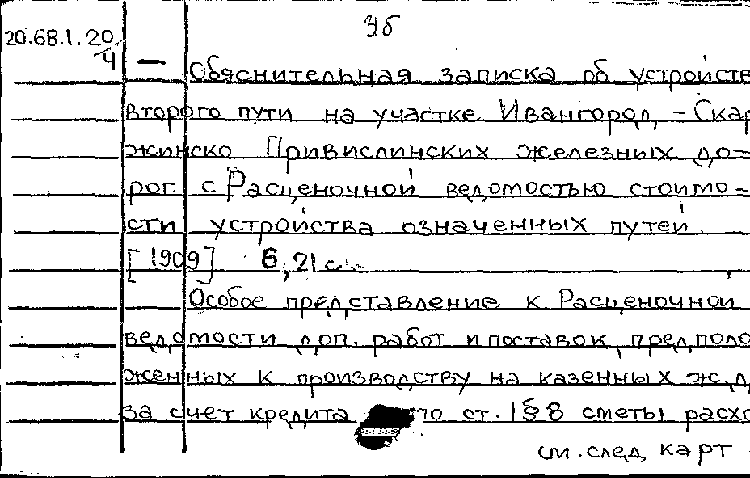 36
20.68.1.20/4 — Обяснительная записка об устройстве
второго пути на участке Ивангород, - Скар
жинско Привислинских железных до=
рог с Расценочной ведомостью стоимо=
сти устройства означенных путей
[1909] 21
Особое представление к Расценочной
ведомости доп. работ и поставок, предполо
женных к производству на казенных ж.д.
за счет кредита по ст. 1 § 8 сметы расхо
см. след. карт